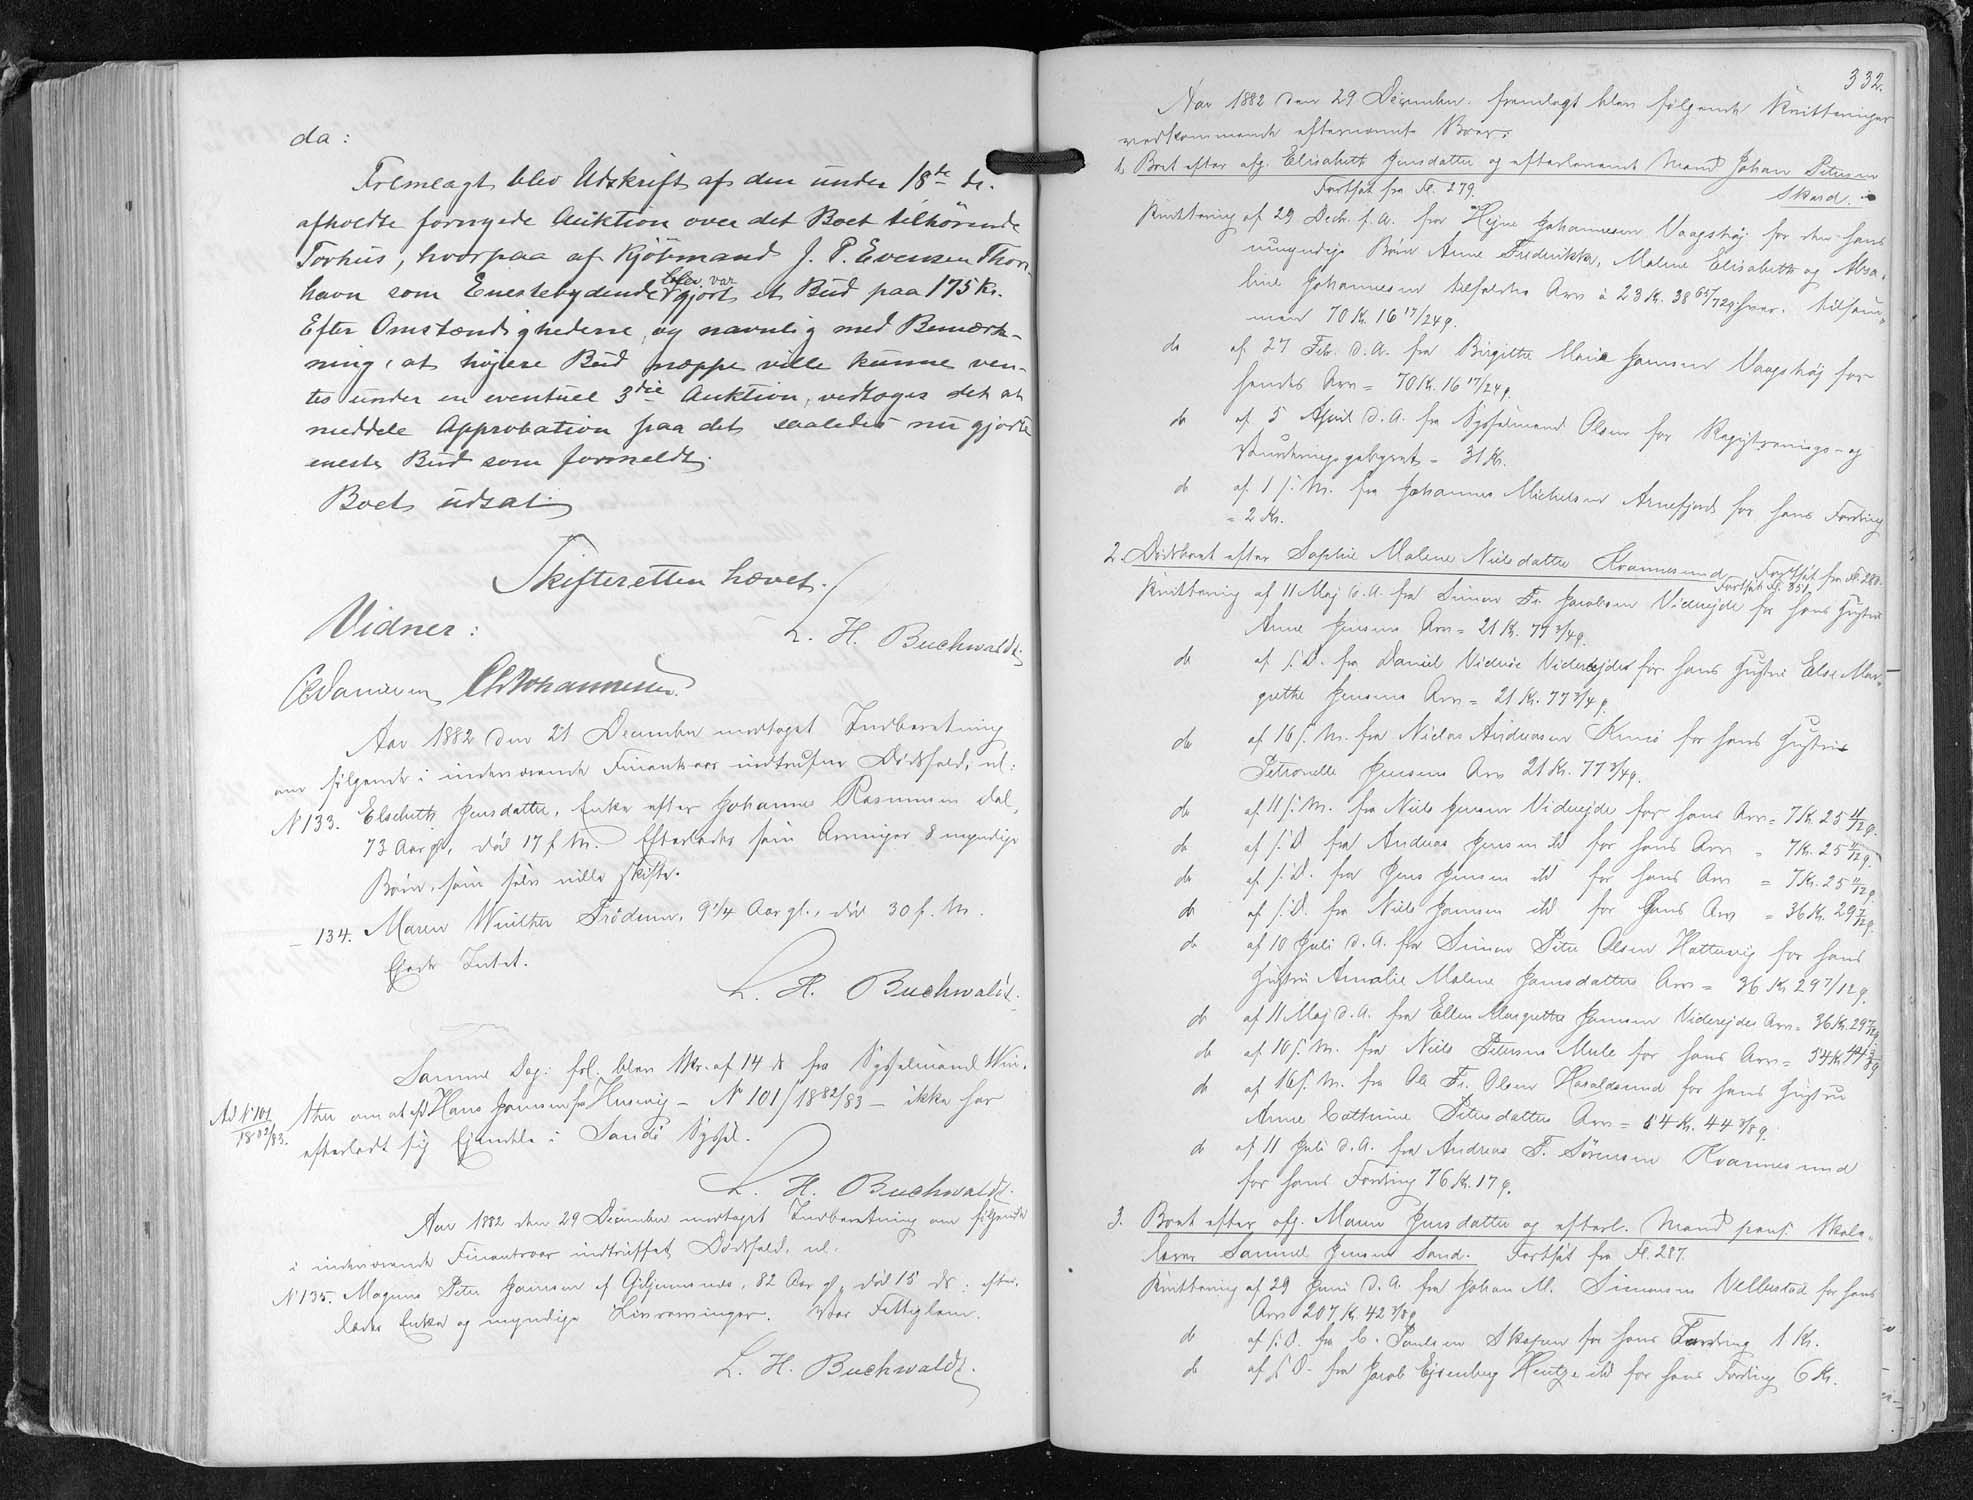 da:
Fremlagt blev Udskrift af den under 18de ds.
afholdte fornyede Auktion over det Boet tilhörende
Torhus, hvorpaa af Kjöbmand J. P. Evensen Thors-
havn som Enestebydende blev var gjort et Bud paa 175 Kr.
Efter Omstændighederne, og navnlig med Bemærk-
ning, at højere Bud næppe ville kunne ven-
tes under en eventuel 3die Auktion, vedtoges det at
meddele Approbation paa det saaledes nu gjorte
eneste Bud som formeldt.
Boet udsat.
Skifteretten hævet.
Vidner:
L. H. Buchwaldt.
Danielsen Johannessen
Aar 1882 den 21 December modtaget Indberetning
om følgende i indeværende Finantsaar indtrufne Dødsfald, nl:
N 133. Elsebeth Jensdatter, Enke efter Johannes Rasmussen Dal,
73 Aar gl, død 17 f. M. Efterladte som Arvinger 8 myndige
Børn, som selv ville skifte.
- 134. Maren Winther Frödium, 9 1/4 Aar gl., død 30 f. M.
Ejede Intet.
L. H. Buchwaldt.
Samme Dag: frl. blev Skr. af 14 ds fra Sysselmand Win-
Ad N 101 1882/83. ther om at afd Hans Joensen fra Husevig - N 101/1882/83 - ikke har
efterladt sig Ejendele i Sandø Syssel.
L. H. Buchwaldt.
Aar 1882 den 29 December modtaget Indberetning om følgende
i indeværende Finantsaar indtruffet Dødsfald, nl.
N 135. Magnus Peter Joensen af Gjljumnæs, 82 Aar gl, død 15 ds: efter-
lader Enke og myndige Livsarvinger. Var Fattiglem.
L. H. Buchwaldt.
332.
Aar 1882 den 29 December. fremlagt blev følgende Kvitteringer
vedkommende efternævnte Boer:
1. Boet efter afg. Elisabeth Jensdatter og efterlevende Mand Johan Petersen
Skaard.
Fortsat fra Fl. 279.
Kvittering af 29 Decbr. f. A. fra Hejne Johannesen Vaagshøj for den hans
umyndige Børn Anne Frederikke, Malene Elisabeth og Absa-
line Johannesen tilfaldne Arv à 23 Kr. 38 65/72 ø. hver. tilsam-
men 70 Kr. 16 17/24 ø.
do af 27 Feb. d. A. fra Birgitte Marie Joensen Vaagshøj for
hendes Arv = 70 Kr. 16 17/24 ø.
do af 5 April d. A. fra Sysselmand Olsen for Registrerings- og
Vurderingsgebyret = 31 Kr.
do af 1 s. M. fra Johannes Michelsen Arnefjord for hans Fordring
= 2 Kr.
2. Dødsboet efter Sophie Malene Nielsdatter Kvannesund Fortsat fra Fl. 280.
Fortsat Fl. 351.
Kvittering af 11 Maj d. A. fra Simon Fr. Jacobsen Viderejde for hans Hustru
Anne Jensens Arv = 21 Kr. 77 3/4 ø.
do af s. D. fra Daniel Viderøe Viderejde for hans Hustru Else Mar-
grethe Jensens Arv = 21 Kr. 77 3/4 ø.
do af 16 s. M. fra Niclas Andreasen Kunø for hans Hustru
Petronelle Jensens Arv 21 Kr. 77 3/4 ø.
do af 11 s. M. fra Niels Jensen Viderejde for hans Arv = 7 Kr. 25 11/12 ø.
do af s. D. fra Andreas Jensen ibd for hans Arv = 7 Kr. 25 11/12 ø.
do af s. D. fra Jens Jensen ibd for hans Arv = 7 Kr. 25 11/12 ø.
do af s. D. fra Niels Joensen ibd for hans Arv = 36 Kr. 29 7/12 ø.
do af 10 Juli d. A. fra Simon Peter Olsen Hattervig for hans
Hustru Amalie Malene Joensdatters Arv = 36 Kr 29 7/12 ø.
do af 11 Maj d. A. fra Ellen Margrethe Joensen Viderejdes Arv = 36 Kr. 29 7/12 ø.
do af 10 s. M. fra Niels Petersen Mule for hans Arv = 54 Kr 44 3/8 ø
do af 16 s. M. fra Ole Fr. Olsen Haraldsund for hans Hustru
Anne Cathrine Petersdatters Arv = 54 Kr. 44 3/8 ø.
do af 11 Juli d. A. fra Andreas F. Sörensen Kvannesund
for hans Fordring 76 Kr. 17 ø.
3. Boet efter afg. Maren Jensdatter og efterl. Mand pens. Skole-
lærer Samuel Jensen Sand. Fortsat fra Fl. 287.
Kvittering af 29 Juni d. A. fra Johan M. Simonsen Velbestad for hans
Arv 207 Kr. 42 3/8 ø
do af s. D. fra C. Poulsen Skopen for hans Fordring 1 Kr.
do af s. D. fra Jacob Ejdenberg Hentze ibd for hans Fordring 6 Kr.